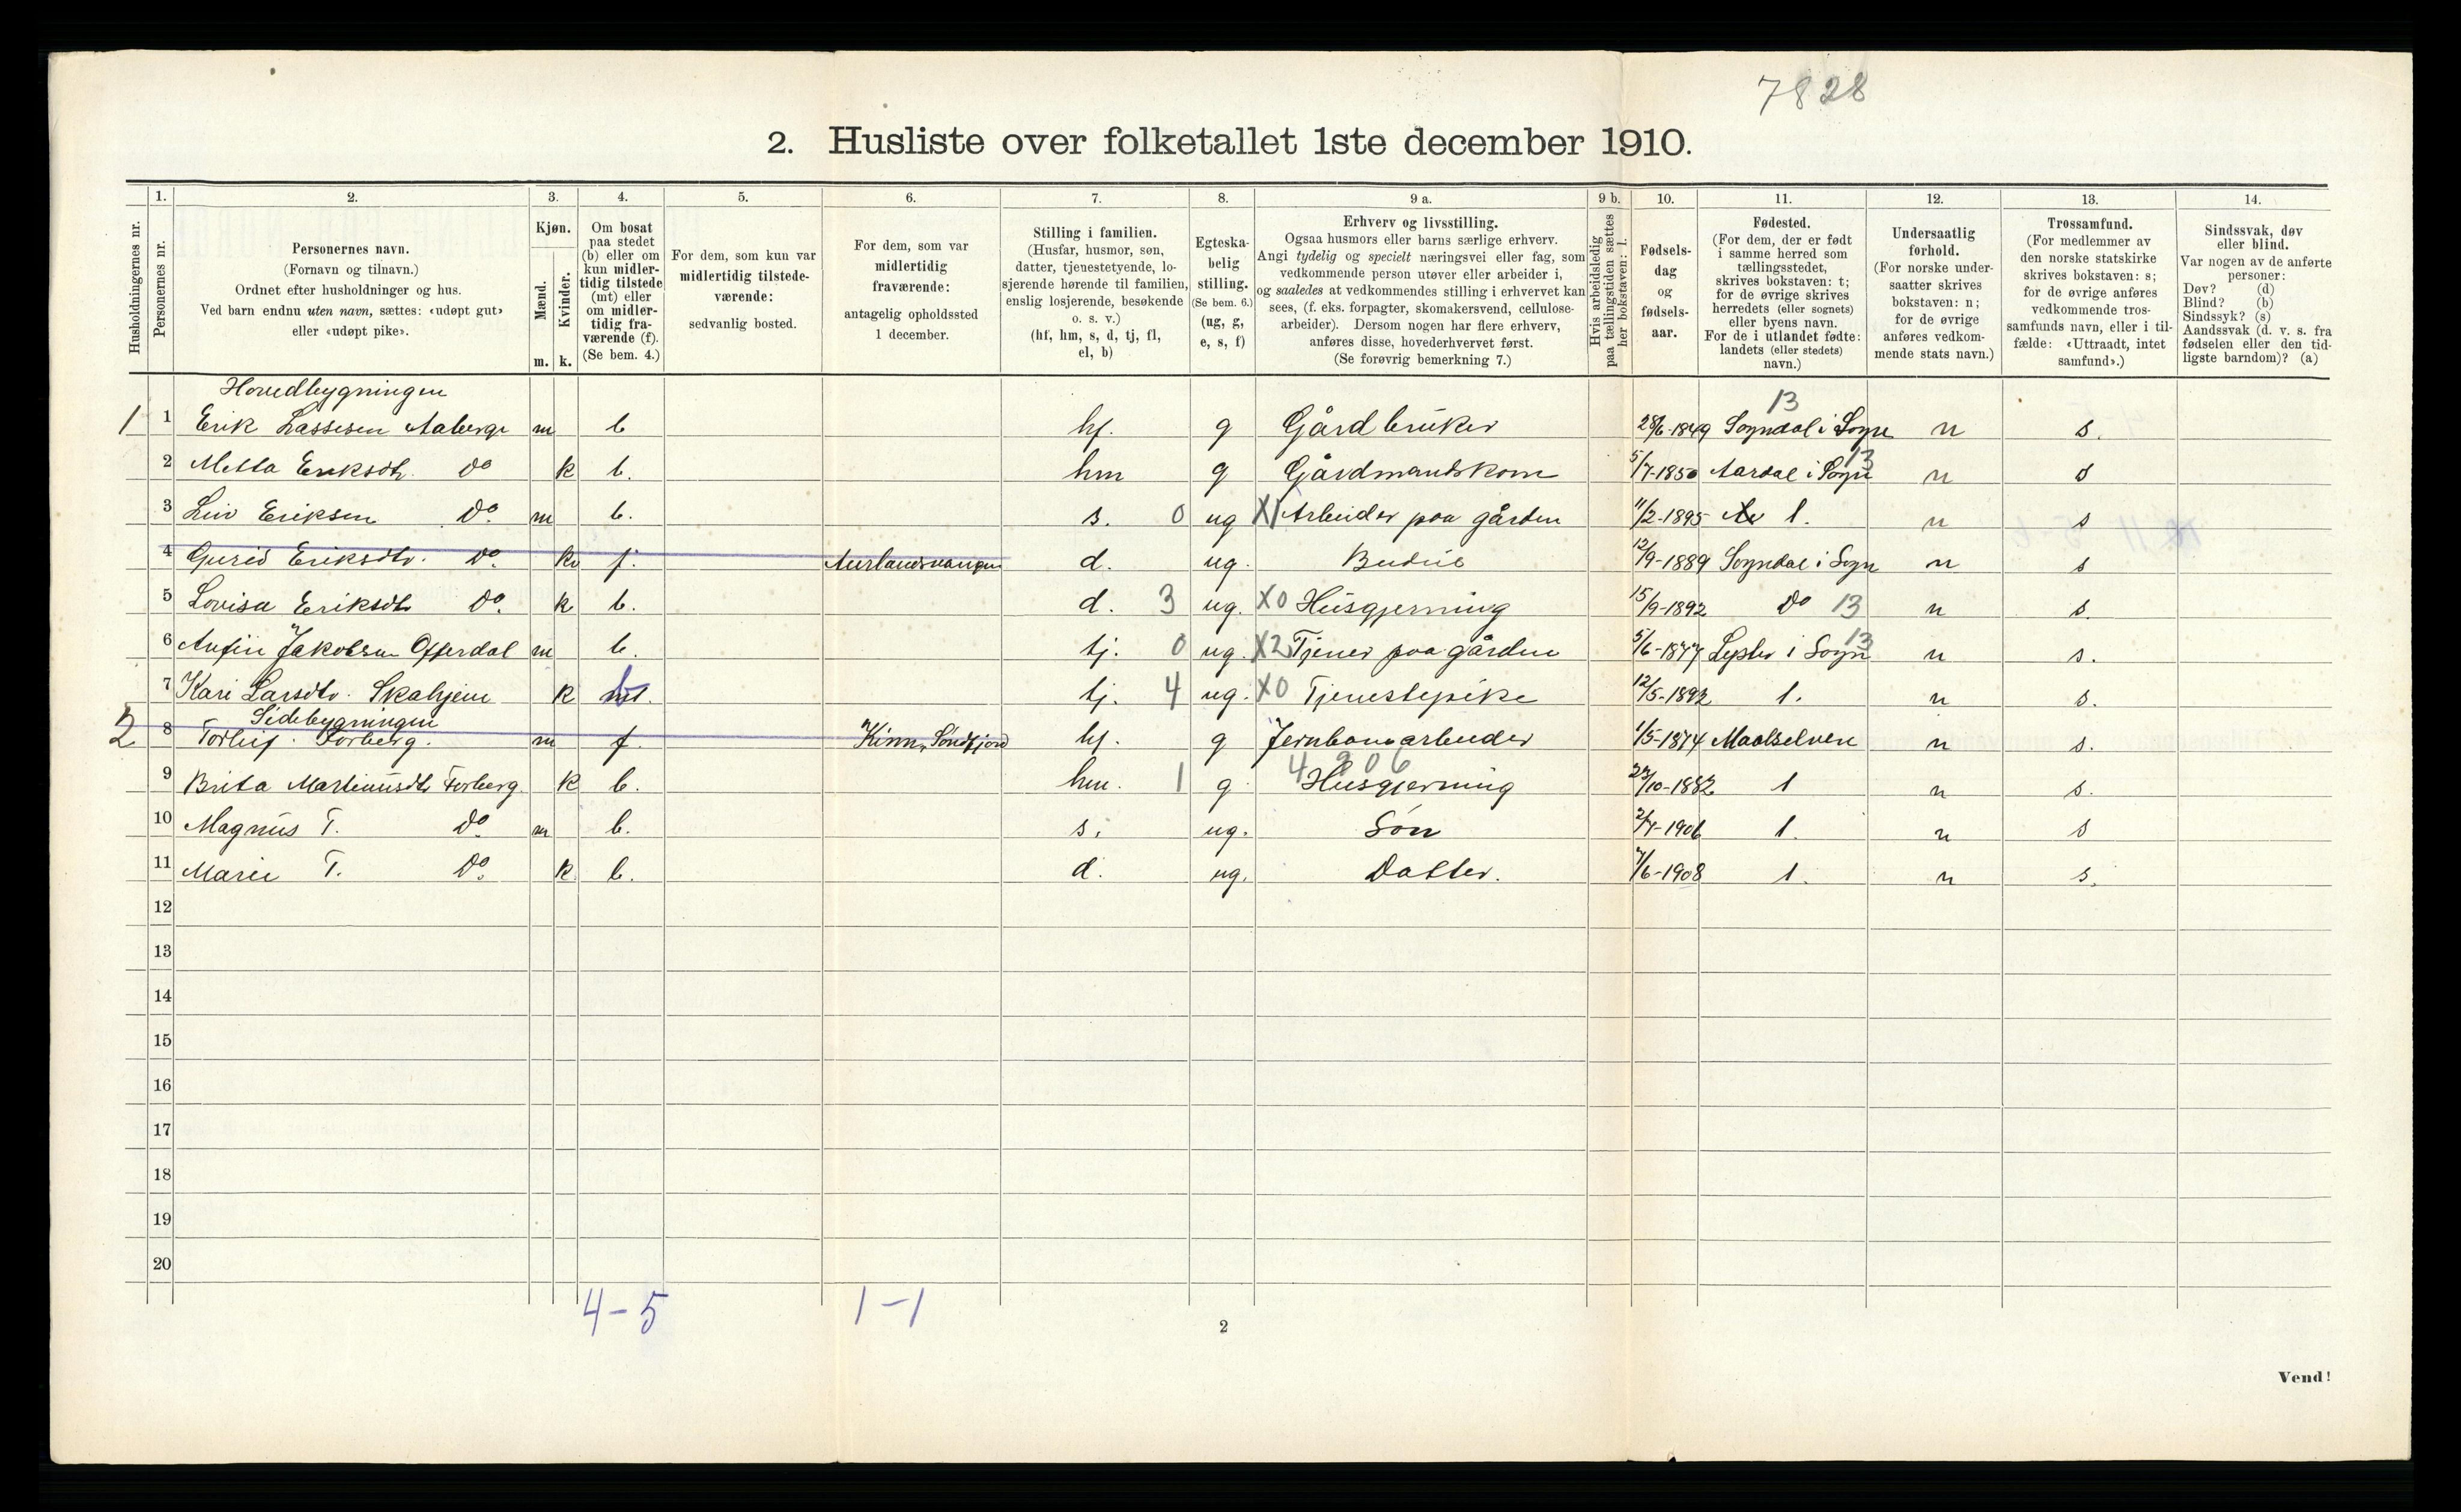 7828
2. Husliste over folketallet 1ste december 1910.
Husholdningernes nr.
1. Personernes nr.
2. Personernes navn. (Fornavn og tilnavn.) Ordnet efter husholdninger og hus. Ved barn endnu uten navn, sættes: «udøpt gut» eller «udøpt pike».
3. Kjøn. Mænd. m. Kvinder. k.
4. Om bosat paa stedet (b) eller om kun midlertidig tilstede (mt) eller om midlertidig fraværende (f). (Se bem. 4.)
5. For dem, som kun var midlertidig tilstedeværende: sedvanlig bosted.
6. For dem, som var midlertidig fraværende: antagelig opholdssted 1 december.
7. Stilling i familien. (Husfar, husmor, søn, datter, tjenestetyende, losjerende hørende til familien, enslig losjerende, besøkende o. s. v.) (hf, hm, s, d, tj, fl, el, b)
8. Egteskabelig stilling. (Se bem. 6.) (ug, g, e, s, f)
9 a. Erhverv og livsstilling. Ogsaa husmors eller barns særlige erhverv. Angi tydelig og specielt næringsvei eller fag, som vedkommende person utøver eller arbeider i, og saaledes at vedkommendes stilling i erhvervet kan sees, (f. eks. forpagter, skomakersvend, cellulosearbeider). Dersom nogen har flere erhverv, anføres disse, hovederhvervet først. (Se forøvrig bemerkning 7.)
9 b. Hvis arbeidsledig paa tællingstiden sættes her bokstaven: l.
10. Fødselsdag og fødselsaar.
11. Fødested. (For dem, der er født i samme herred som tællingsstedet, skrives bokstaven: t; for de øvrige skrives herredets (eller sognets) eller byens navn. For de i utlandet fødte: landets (eller stedets) navn.)
12. Undersaatlig forhold. (For norske undersaatter skrives bokstaven: n; for de øvrige anføres vedkommende stats navn.)
13. Trossamfund. (For medlemmer av den norske statskirke skrives bokstaven: s; for de øvrige anføres vedkommende trossamfunds navn, eller i tilfælde: «Uttraadt, intet samfund».)
14. Sindssvak, døv eller blind. Var nogen av de anførte personer: Døv? (d) Blind? (b) Sindssyk? (s) Aandssvak (d. v. s. fra fødselen eller den tidligste barndom)? (a)
Hovedbygningen 13
1 1 Erik Lassesen Aaberge m b hf. g Gårdbruker 28/6-1849 Sogndal i Sogn n s.
2 Metta Eriksdtr. Do k b. hm g Gårdmandskone 5/7-1850 Aardal i Sogn 13 n s
3 Leiv Eriksen Do. m b. s. 0 ug X1 Arbeider paa gården 11/2-1895 t. n s
4 Gurid Eriksdtr. Do. k f. Aurlandsvangen d. ug. Budeie 12/9-1889 Sogndal i Sogn n s
5 Lovisa Eriksdtr Do. k b. d. 3 ug. X0 Husgjerning 15/9-1892 Do 13 n s.
6 Anfin Jakobsen Offerdal m b. tj. 0 ug. X2 Tjener paa gården 5/6-1877 Leyster i Sogn 13 n s.
7 Kari Larsdtr. Skahjem k mt. b tj. 4 ug. X0 Tjenestepike 12/5-1892 t. n s.
Sidebygningen
2 8 Torleif Forberg. m f. Kinn, Søndfjord hf. g Jernbanearbeider 1/5-1874 Maalselven n s.
4 906
9 Brita Martinusdtr Forberg k b. hm. 1 g Husgjerning 23/10-1882 t n s.
10 Magnus T. Do. m b. s. ug. Søn 2/7-1906 t. n s
11 Marie T. Do. k b. d. ug. Datter. 7/6-1908 t. n s.
12
13
14
15
16
17
18
19
20
4-5 1-1
2
Vend!